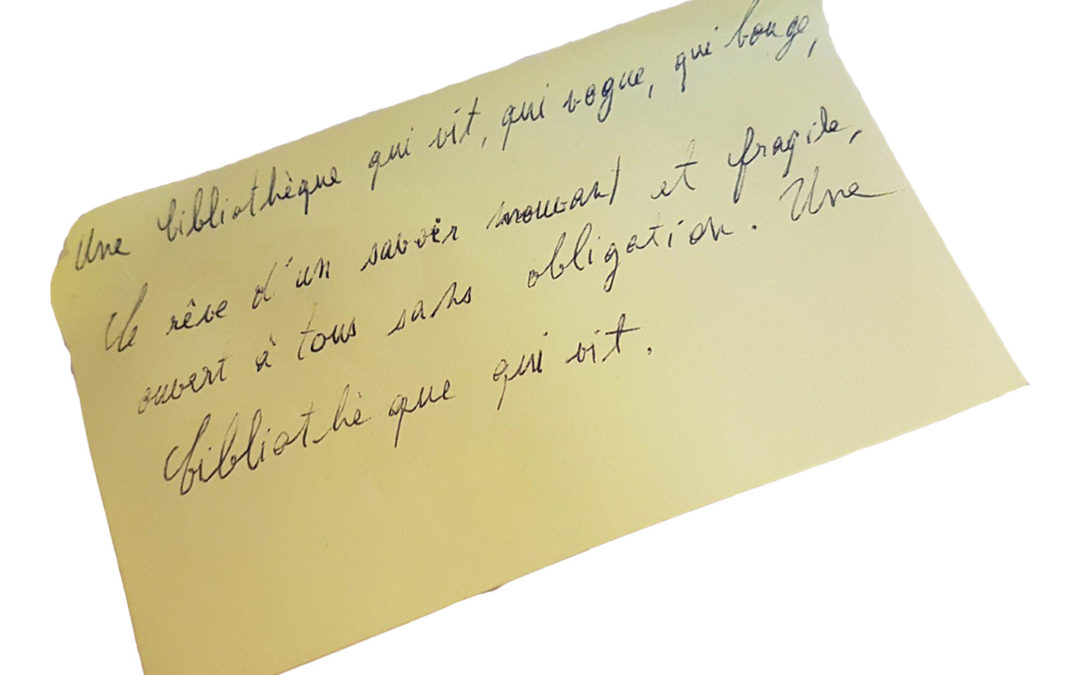 Une bibliothèque qui vit, qui vogue, qui bouge,
Le rêve d'un savoir mouvant et fragile,
ouvert à tous sans obligation. Une
bibliothèque qui vit.